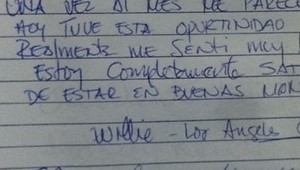 UNA VEZ AL MES ME PAREC
HOY TUVE ESTA OPORTUNIDAD
REALMENTE ME SENTI MUY
ESTOY Completamente SAT
DE ESTAR EN BUENAS MAN
Willie - Los Angeles